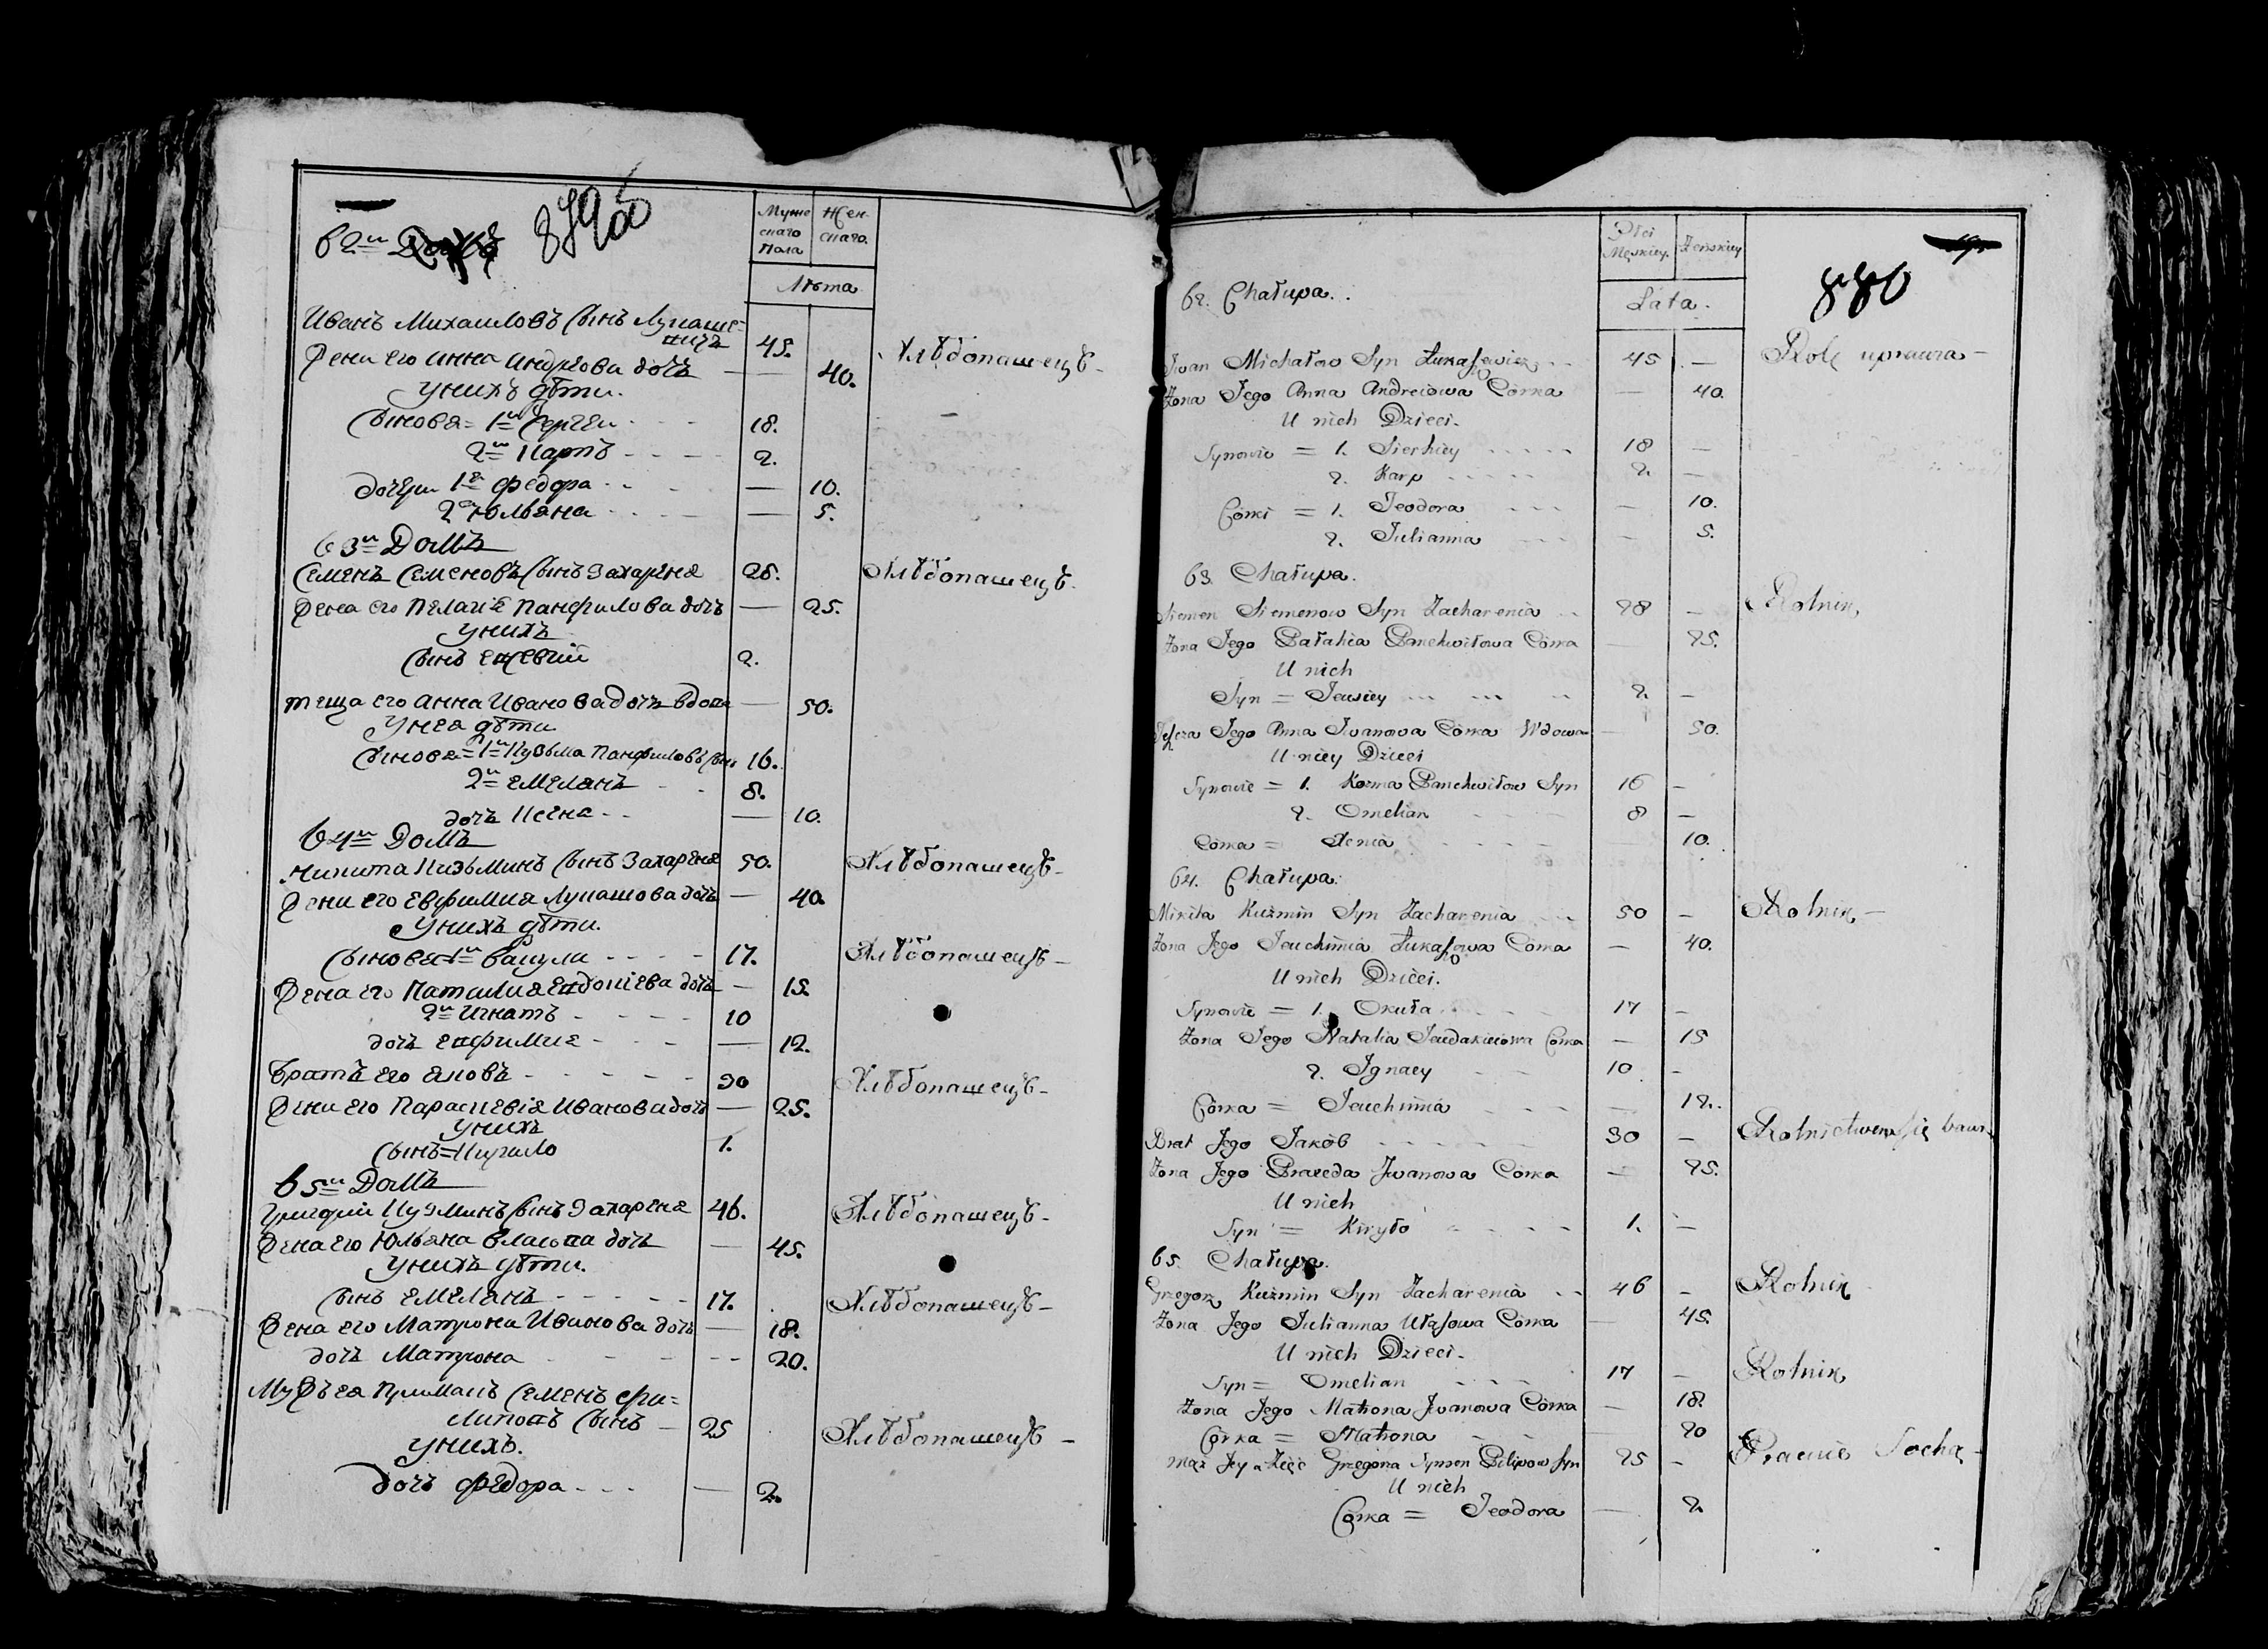 879об
62й Домъ
Муже
скаго
пола
Жен
скаго.
Лѣта
Иванъ Михаиловъ сынъ Лукаше-
вичъ 45. Хлѣбопашецъ-
Жена его Анна Андреева дочь — 40.
У нихъ дѣти.
Сыновя= 1й Сергеи - - - 18.
2й Карпъ - - - - 2.
дочери 1я Федора - - — 10.
2я Юльяна - - - — 5.
63й Домъ
Семенъ Семеновъ сынъ Захареня 28. Хлѣбопашецъ.
Жена его Пелагія Панфилова дочь — 25.
У нихъ
сынъ Евсевий 2.
теща его Анна Иванова дочь вдова — 50.
У нея дѣти
Сыновя= 1й Кузьма Панфиловъ сынъ 16.
2й Емелянъ - - 8.
дочь Ксеня - - — 10.
64й Домъ
Никита Кизьминъ сынъ Захареня 50. Хлѣбопашецъ-
Жена его Евфимия Лукашова дочь — 40.
У нихъ дѣти.
Сыновя 1й Вакула - - - - 17. Хлѣбопашецъ-
Жена его Наталия Евдокиева дочь — 15.
2й Игнатъ - - - - 10
дочь Евфимия - - - — 12.
Братъ его Яковъ - - - - - 30 Хлѣбопашецъ-
Жена его Параскевія Иванова дочь — 25.
У нихъ
Сынъ=Кирило 1.
65й Домъ
Григорий Кузминъ сынъ Захареня 46. Хлѣбопашецъ-
Жена его Юльяна Власова дочь — 45.
У нихъ дѣти.
Сынъ Емелянъ - - - - - 17. Хлѣбопашецъ-
Жена его Матрона Иванова дочь — 18.
дочь Матрона - - - - - 20.
Мужъ ея Примакъ Семенъ Фи=
липовъ сынъ — 25 Хлѣбопашецъ -
У нихъ.
дочь Федора - - - — 2.
Płci
Męskiey. Żeńskiey
880
62. Chałupa. . Lata.
Jwan Michałow Syn Łukaszewicz - - 45 — Rolę uprawia -
Żona Jego Anna Andreiowa Córka — 40.
U nich Dzieci.
Synowie = 1. Sierhiey - - - - - 18 —
2. Karp - - - - - 2. —
Córki = 1. Teodora - - - — 10.
2. Julianna - - - — 5.
63. Chałupa.
Siemen Siemenow Syn Zacharenia - - 28 — Rolnik,
Żona Jego Pałahia Panchwiłowa Córka — 25.
U nich
Syn = Jewsiey 2. —
Teszcza Jego Anna Jwanowa Córka Wdowa — 50.
U niey Dzieci
Synowie = 1. Kozma Panchwiłow Syn 16 —
2. Omelian - - - - 8 —
Córka = Xenia - - - - - 10.
64. Chałupa.
Mikita Kuźmin Syn Zacharenia - - 50 — Rolnik -
Żona Jego Jeuchimia Łukaszowa Córka — 40.
U nich Dzieci.
Synowie = 1. Okuła - - - - 17 —
Żona Jego Natalia Jeudakieiowa Córka — 15
2. Jgnacy - - 10 —
Córka = Jeuchimia - - - — 12.
Brat Jego Jakób - - - - - - 30 — Rolnictwem się bawi
Żona Jego Praxeda Jwanowa Córka — 25.
U nich
Syn = Kiryło - - - - - 1. —
65. Chałupa.
Grzegorz Kuźmin Syn Zacharenia - - 46 — Rolnik
Żona Jego Julianna Ułasowa Córka — 45.
U nich Dzieci.
Syn = Omelian - - - - 17 — Rolnik
Żona Jego Matrona Jwanowa Córka — 18.
Córka = Matrona - - 20
mąż Jey a Zięć Grzegorza Symon Pilipow syn 25 — Pracuie Sochą -
U nich
Córka = Teodora — 2.